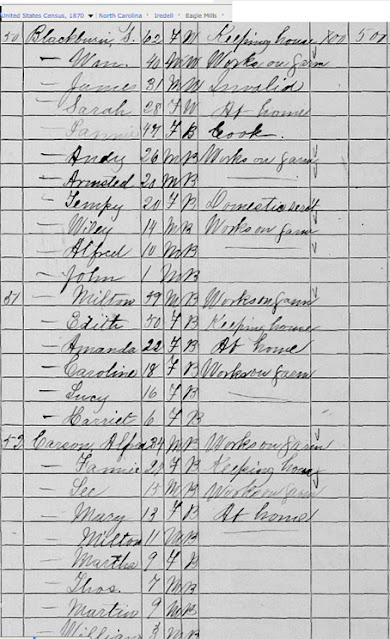 United States Census, 1870 ▾ North Carolina › Iredell › Eagle Mills ›
50 Blackburn, S. 62 F W Keeping house 100 500
— Wm. 40 M W Works on farm
— James 31 M W Invalid
— Sarah 28 F W At home
— Fannie 47 F B Cook.
— Andy 26 M B Works on farm
— Armsted 20 M B
— Tempy 20 F B Domestic servt
— Wiley 14 M B Works on farm
— Alfred 10 M B
— John 1 M B
51 — Milton 49 M B Works on farm
— Edith 50 F B Keeping house
— Amanda 22 F B At home
— Caroline 18 F B Works on farm
— Lucy 16 F B
— Harriet 6 F B
52 Carson, 24 M B Works on farm
— Fannie F B Keeping house
Lee 15 M B Works on farm
— Mary 13 F B At home
Milton 11 M B
— Martha 9 F B
— Thos. 7 M B
— Martin 9 M B
— William 3 M B